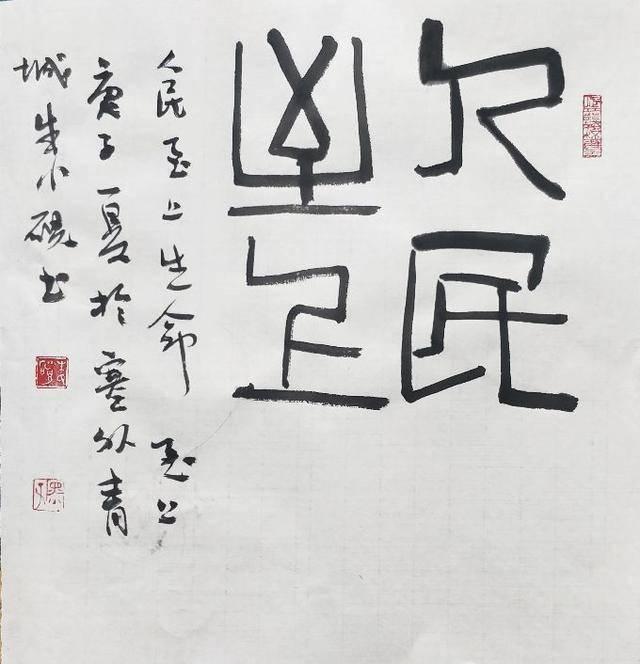 人民
至上
人民至上生命至上
庚子夏於塞外青
城朱小砚书